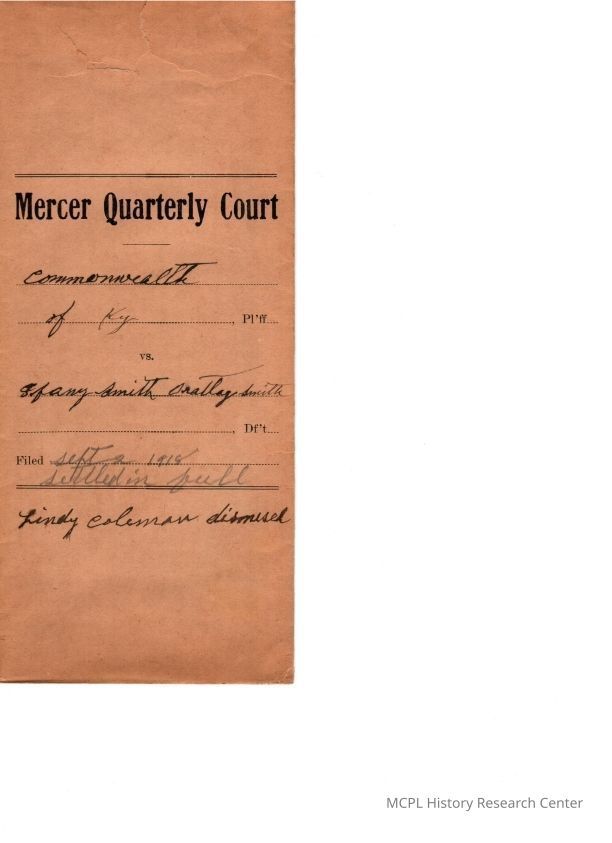 Mercer Quarterly Court
Commonwealth
of Ky , Pl'ff
vs.
Smith Smith
, Df't.
Filed Sept 2 1918
settled in full
Lindy Coleman dismised
MCPL History Research Center